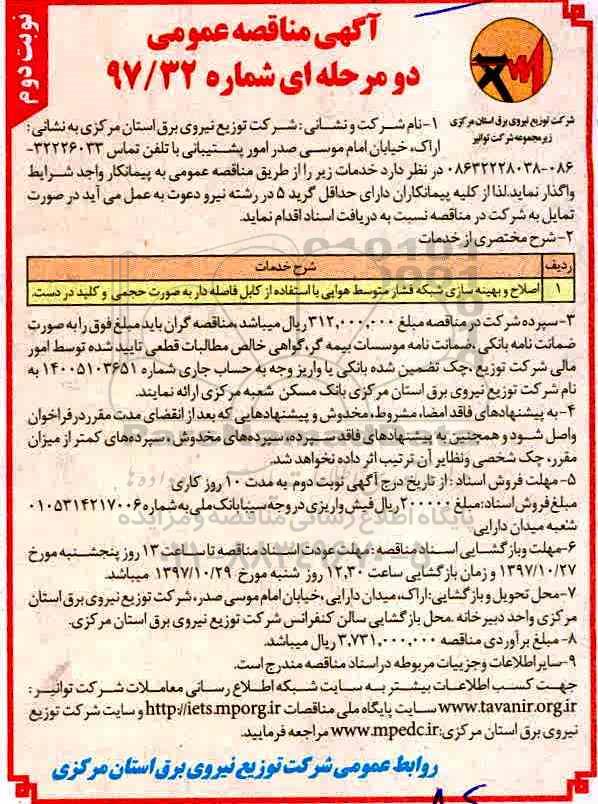 نوبت دوم
آگهی مناقصه عمومی
دو مرحله ای شماره ۹۷/۳۲
شرکت توزیع نیروی برق استان مرکزی
زیرمجموعه شرکت توانیر
۱-نام شرکت و نشانی: شرکت توزیع نیروی برق استان مرکزی به نشانی:
اراک، خیابان امام موسی صدر امور پشتیبانی با تلفن تماس ۳۲۲۲۶۰۳۳-
۰۸۶-۰۸۶۳۲۲۲۸۰۳۸ در نظر دارد خدمات زیر را از طریق مناقصه عمومی به پیمانکار واجد شرایط
واگذار نماید. لذا از کلیه پیمانکاران دارای حداقل گرید ۵ در رشته نیرو دعوت به عمل می آید در صورت
تمایل به شرکت در مناقصه نسبت به دریافت اسناد اقدام نماید.
۲-شرح مختصری از خدمات
ردیف شرح خدمات
۱ اصلاح و بهینه سازی شبکه فشار متوسط هوایی با استفاده از کابل فاصله دار به صورت حجمی و کلید در دست.
۳-سپرده شرکت در مناقصه مبلغ ۳۱۲,۰۰۰,۰۰۰ ریال میباشد، مناقصه گران باید مبلغ فوق را به صورت
ضمانت نامه بانکی، ضمانت نامه موسسات بیمه گر، گواهی خالص مطالبات قطعی تایید شده توسط امور
مالی شرکت توزیع، چک تضمین شده بانکی یا واریز وجه به حساب جاری شماره ۱۴۰۰۵۱۰۳۶۵۱ به
نام شرکت توزیع نیروی برق استان مرکزی بانک مسکن شعبه مرکزی ارائه نمایند.
۴- به پیشنهادهای فاقد امضا، مشروط، مخدوش و پیشنهادهایی که بعد از انقضای مدت مقرر در فراخوان
واصل شود و همچنین به پیشنهادهای فاقد سپرده، سپرده‌های مخدوش، سپرده‌های کمتر از میزان
مقرر، چک شخصی ونظایر آن ترتیب اثر داده نخواهد شد.
۵- مهلت فروش اسناد: از تاریخ درج آگهی نوبت دوم به مدت ۱۰ روز کاری
مبلغ فروش اسناد: مبلغ ۲۰۰۰۰۰ ریال فیش واریزی در وجه سیبا بانک ملی به شماره ۰۱۰۵۳۱۴۲۱۷۰۰۶
شعبه میدان دارایی
۶-مهلت وبازگشایی اسناد مناقصه: مهلت عودت اسناد مناقصه تا ساعت ۱۳ روز پنجشنبه مورخ
۱۳۹۷/۱۰/۲۷ و زمان بازگشایی ساعت ۱۲,۳۰ روز شنبه مورخ ۱۳۹۷/۱۰/۲۹ میباشد.
۷-محل تحویل و بازگشایی: اراک، میدان دارایی، خیابان امام موسی صدر، شرکت توزیع نیروی برق استان
مرکزی واحد دبیرخانه .محل بازگشایی سالن کنفرانس شرکت توزیع نیروی برق استان مرکزی.
۸- مبلغ برآوردی مناقصه ۳,۷۳۱,۰۰۰,۰۰۰ ریال میباشد.
۹-سایر اطلاعات وجزییات مربوطه در اسناد مناقصه مندرج است.
جهت کسب اطلاعات بیشتر به سایت شبکه اطلاع رسانی معاملات شرکت توانیر:
www.tavanir.org.ir سایت پایگاه ملی مناقصات http://iets.mporg.ir و سایت شرکت توزیع
نیروی برق استان مرکزی: www.mpedc.ir مراجعه فرمایید.
روابط عمومی شرکت توزیع نیروی برق استان مرکزی